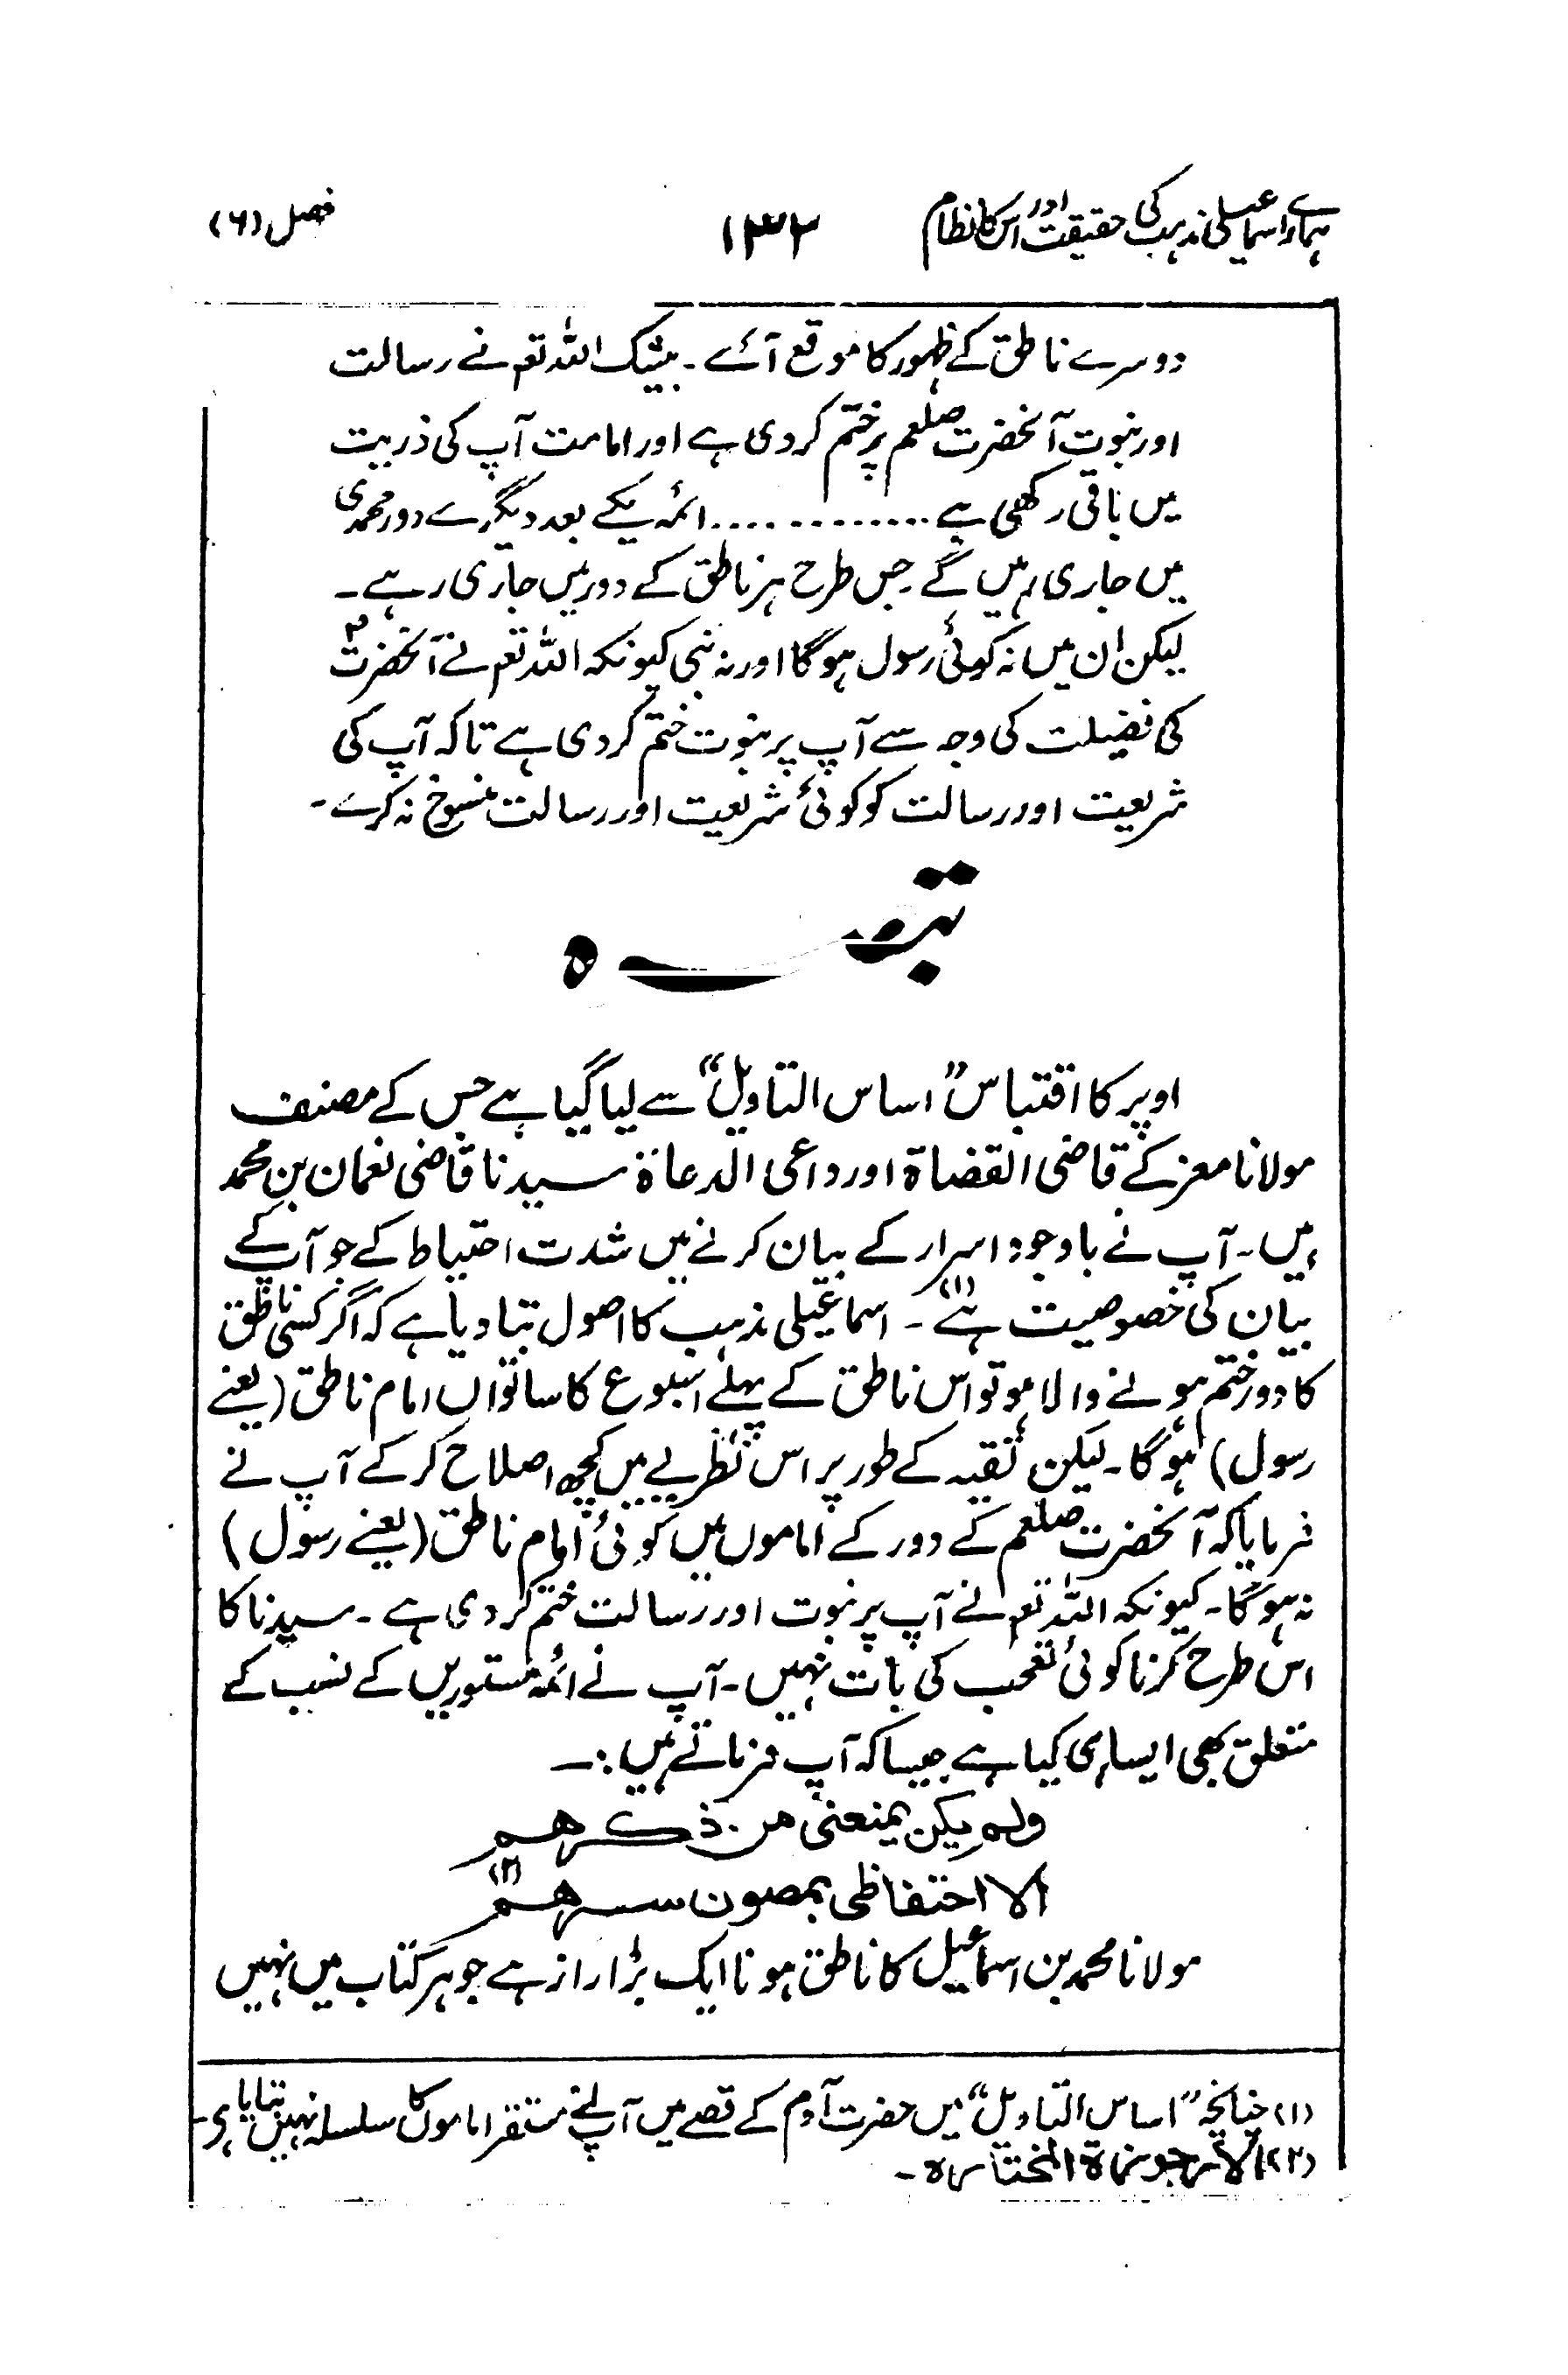 ہمارے اسماعیلی مذہب کی حقیقت اور اس کا نظام
۱۳۲
فصل (۶)
دوسرے ناطق کے ظہور کا موقع آئے ۔ بیشک اللہ تعم نے رسالت
اور نبوت آنحضرت صلعم پر ختم کر دی ہے اور امامت آپ کی ذریت
میں باقی رکھی ہے ............. ائمہ یکے بعد دیگرے دور محمدی
میں جاری رہیں گے جس طرح ہر ناطق کے دور میں جاری رہے ۔
لیکن ان میں نہ کوئی رسول ہوگا اور نہ نبی کیونکہ اللہ تعم نے آنحضرتؐ
کی فضیلت کی وجہ سے آپ پر نبوت ختم کر دی ہے تاکہ آپ کی
شریعت اور رسالت کو کوئی شریعت اور رسالت منسوخ نہ کرے ۔
تبصرہ
اوپر کا اقتباس "اساس التاویل" سے لیا گیا ہے جس کے مصنف
مولانا معز کے قاضی القضاۃ اور داعی الدعاۃ سیدنا قاضی نعمان بن محمد
ہیں ۔ آپ نے باوجود اسرار کے بیان کرنے میں شدت احتیاط کے جو آپ کے
بیان کی خصوصیت ہے (۱) ۔ اسماعیلی مذہب کا اصول بتا دیا ہے کہ اگر کسی ناطق
کا دور ختم ہونے والا ہو تو اس ناطق کے پہلے اسبوع کا ساتواں امام ناطق (یعنے
رسول) ہوگا ۔ لیکن تقیہ کے طور پر اس نظریے میں کچھ اصلاح کر کے آپ نے
فرمایا کہ آنحضرت صلعم کے دور کے اماموں میں کوئی امام ناطق (یعنے رسول)
نہ ہوگا ۔ کیونکہ اللہ تعم نے آپ پر نبوت اور رسالت ختم کر دی ہے ۔ سیدنا کا
اس طرح کرنا کوئی تعجب کی بات نہیں ۔ آپ نے ائمہ مستورین کے نسب کے
متعلق بھی ایسا ہی کیا ہے جیسا کہ آپ فرماتے ہیں :۔
ولم یکن یمنعنی من ذکرهم
الا احتفاظی بمصون سرهم (۲)
مولانا محمد بن اسماعیل کا ناطق ہونا ایک بڑا راز ہے جو ہر کتاب میں نہیں
(۱) چنانچہ "اساس التاویل" میں حضرت آدم کے قصے میں آپ نے مستقر اماموں کا سلسلہ نہیں بتایا ہی ۔
(۲) الارجوزة المختارہ ۔